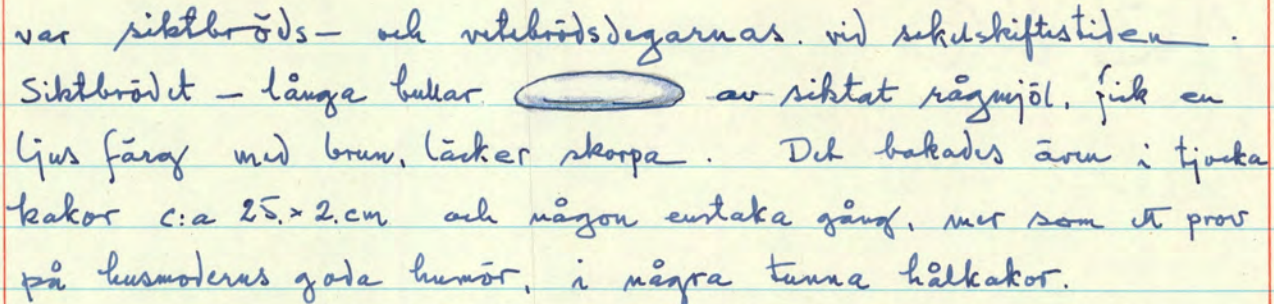 var siktbröds- och vetebrödsdegarnas. vid sekelskiftestiden.
Siktbrödet - långa bullar av siktat rågmjöl, fick en
ljus färg med brun, läcker skorpa. Det bakades även i tjocka
kakor c:a 25.× 2.cm och någon enstaka gång, mer som ett prov
på husmoderns goda humör, i några tunna hålkakor.